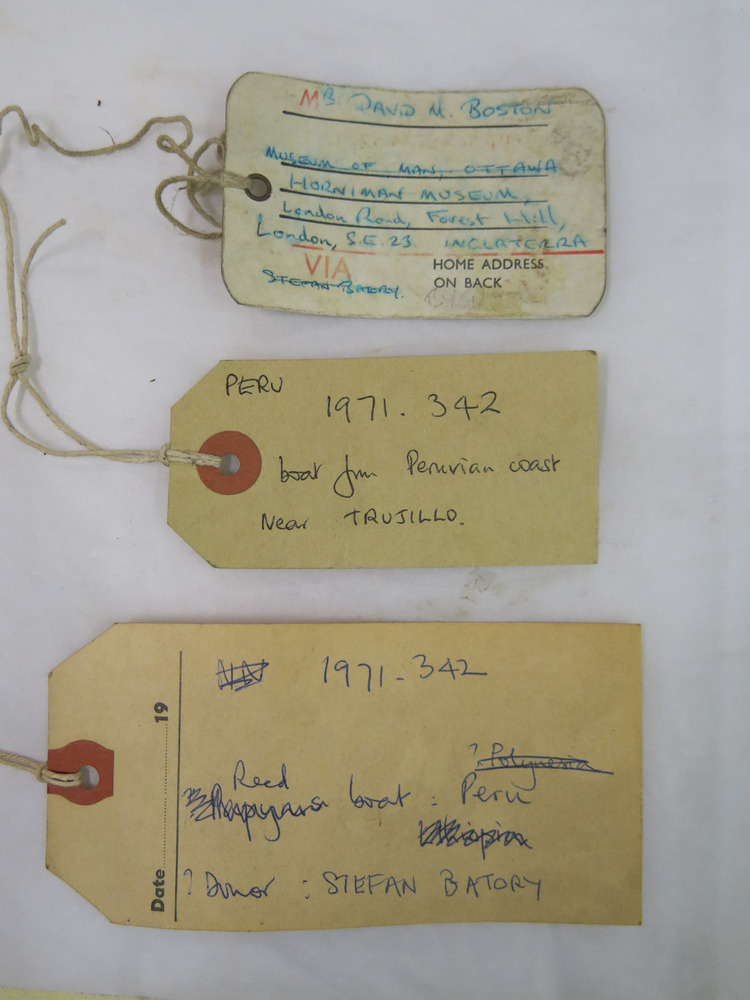 MR DAVID M. BOSTON
MUSEUM OF MAN, OTTAWA
HORNIMAN MUSEUM,
London Road, Forest Hill,
London, S.E. 23. INGLATERRA
VIA
STEFAN BATORY.
HOME ADDRESS
ON BACK
PERU
1971. 342
boat from Peruvian coast
Near TRUJILLO.
1971-342
Date 19
? Polynesia
Reed
boat : Peru
? Donor : STEFAN BATORY